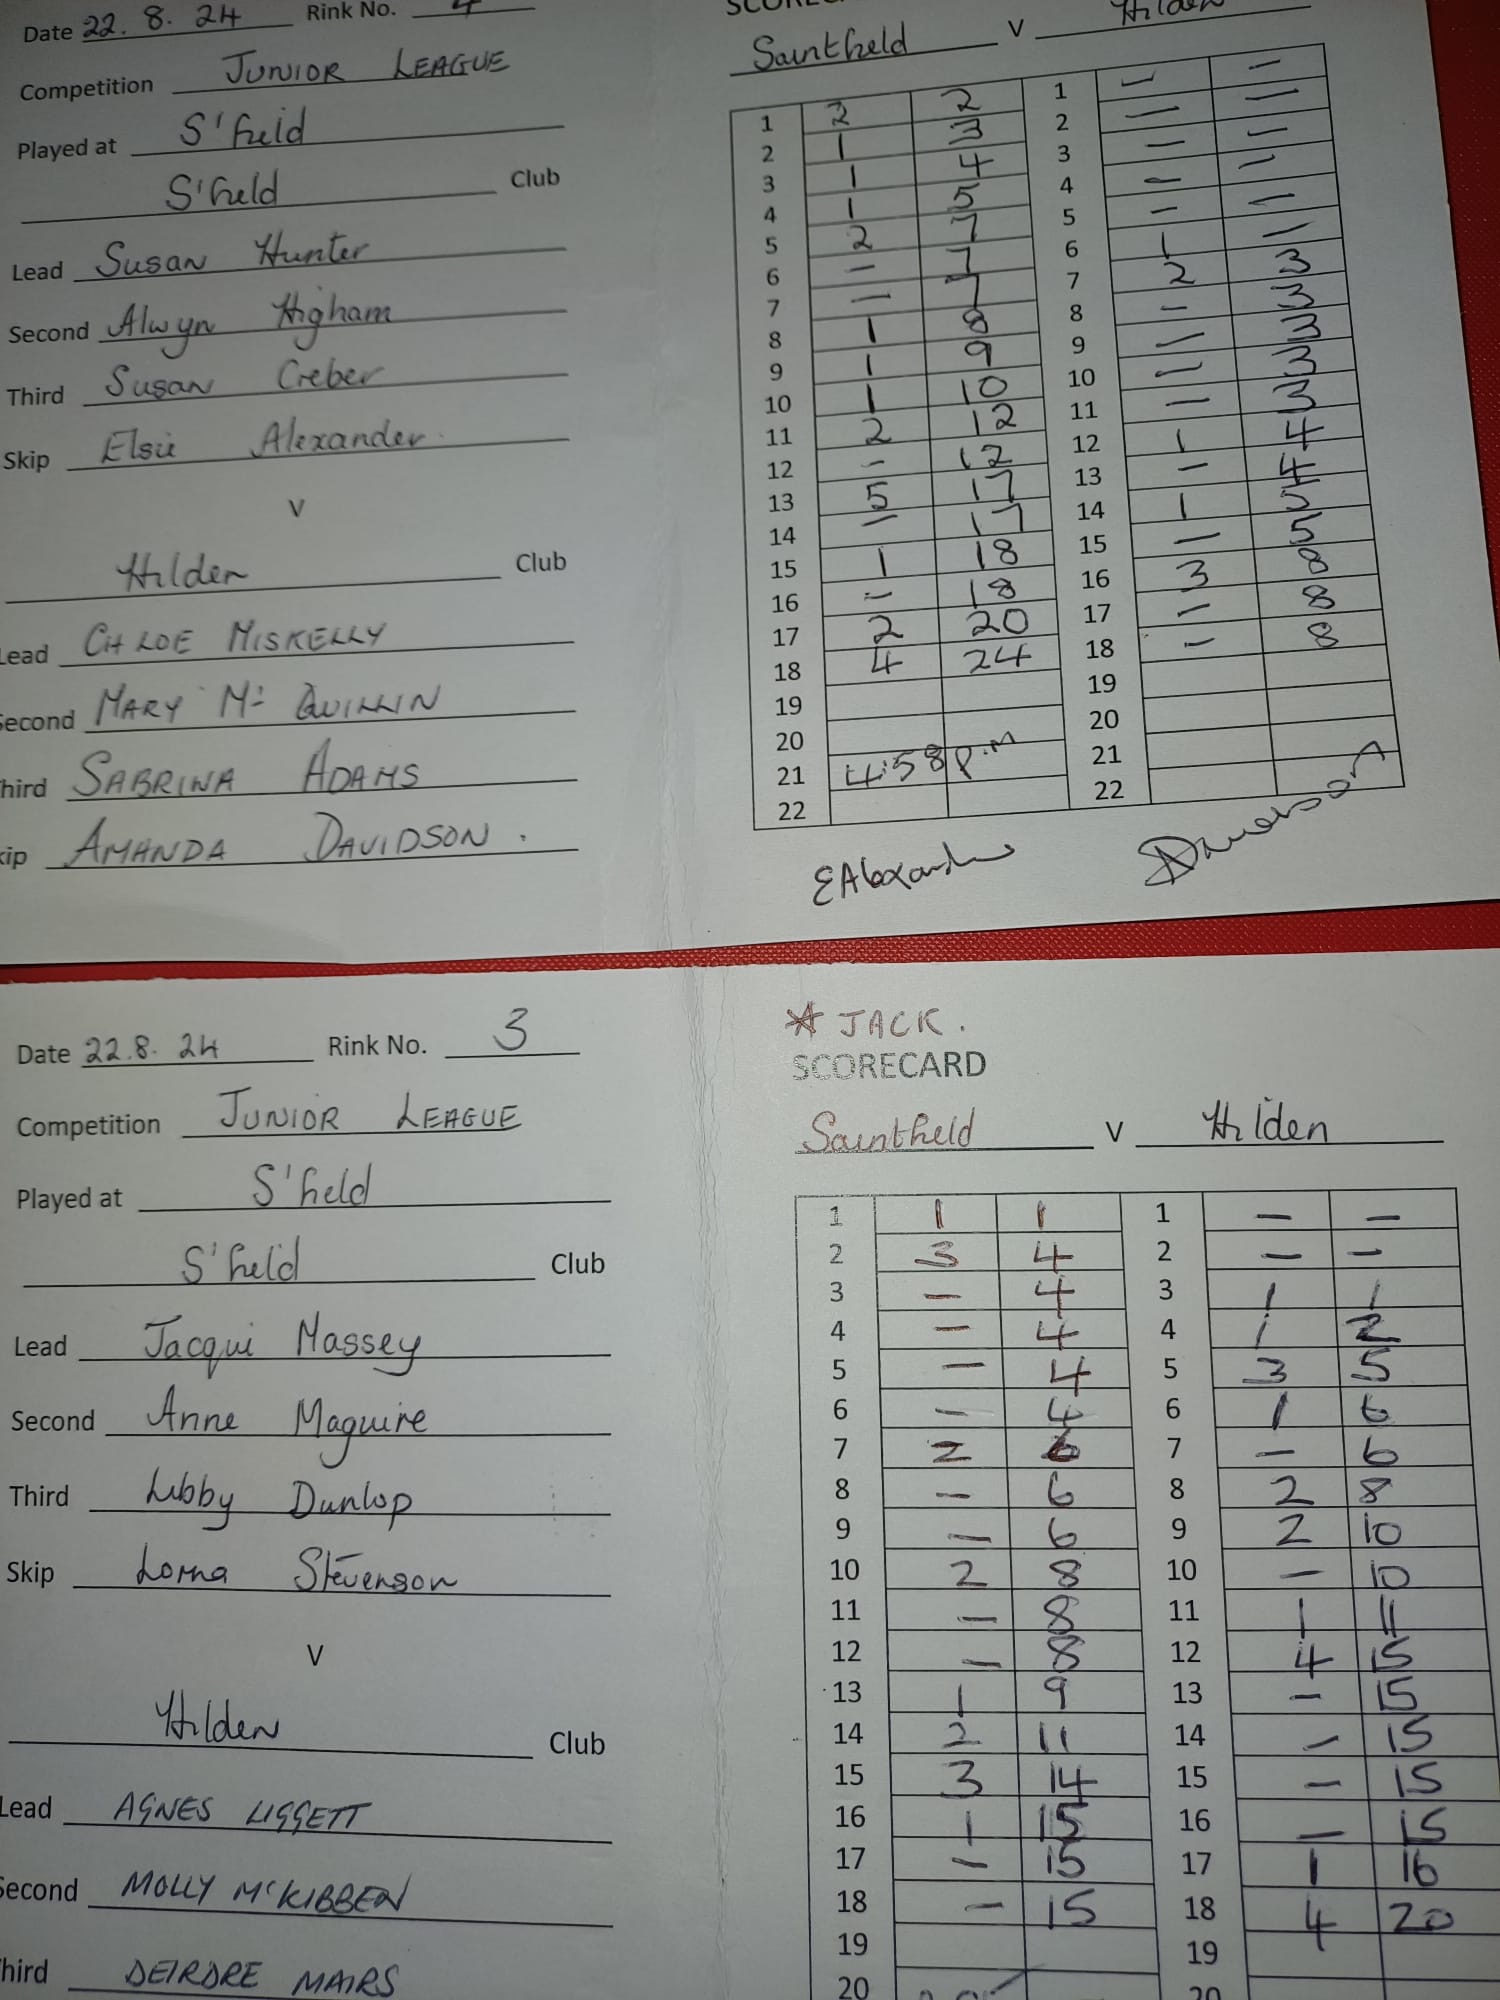 Date 22. 8. 24 Rink No. 4
Competition JUNIOR LEAGUE
Played at S'field
S'field Club
Lead Susan Hunter
Second Alwyn Higham
Third Susan Creber
Skip Elsie Alexander.
V
Hilden Club
Lead CHLOE MISKELLY
Second MARY Mc QUILLIN
Third SABRINA ADAMS
Skip AMANDA DAVIDSON.
Saintfield V Hilden
1 2 2 1 – –
2 1 3 2 – –
3 1 4 3 – –
4 1 5 4 – –
5 2 7 5 – –
6 – 7 6 1 –
7 – 7 7 2 3
8 1 8 8 – 3
9 1 9 9 – 3
10 1 10 10 – 3
11 2 12 11 – 3
12 – 12 12 1 4
13 5 17 13 – 4
14 – 17 14 1 5
15 1 18 15 – 5
16 – 18 16 3 8
17 2 20 17 – 8
18 4 24 18 – 8
19 19
20 20
21 4:58 p.m 21
22 22
EAlexander ADavidson
Date 22.8. 24 Rink No. 3
Competition JUNIOR LEAGUE
Played at S'field
S'field Club
Lead Jacqui Massey
Second Anne Maguire
Third Libby Dunlop
Skip Lorna Stevenson
V
Hilden Club
Lead AGNES LIGGETT
Second MOLLY McKIBBEN
Third DEIRDRE MAIRS
* JACK.
SCORECARD
Saintfield V Hilden
1 1 1 1 – –
2 3 4 2 – –
3 – 4 3 1 1
4 – 4 4 1 2
5 – 4 5 3 5
6 – 4 6 1 6
7 2 6 7 – 6
8 – 6 8 2 8
9 – 6 9 2 10
10 2 8 10 – 10
11 – 8 11 1 11
12 – 8 12 4 15
13 1 9 13 – 15
14 2 11 14 – 15
15 3 14 15 – 15
16 1 15 16 – 15
17 – 15 17 1 16
18 – 15 18 4 20
19 19
20 20